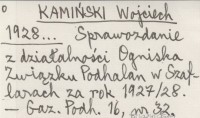 KAMIŃSKI Wojciech
1928... Sprawozdanie
z działalności Ogniska
Związku Podhalan w Szaf-
larach za rok 1927/28.
– Gaz. Podh. 16, nr 33.